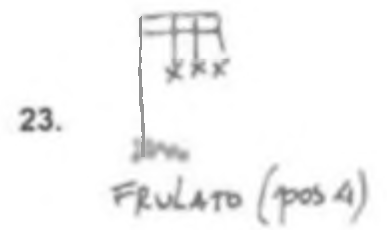 23.
FRULATO (pos 4)